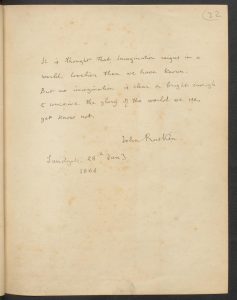 (22)
It is thought that Imagination reigns in a
world lovelier than we have known.
But no imagination is clear or bright enough
to conceive the glory of the world we see,
yet know not.
John Ruskin
Sunday 28th